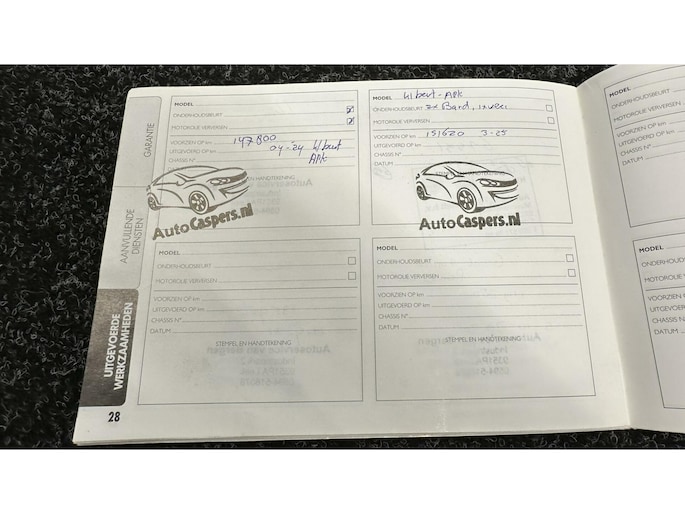 GARANTIE
AANVULLENDE
DIENSTEN
UITGEVOERDE
WERKZAAMHEDEN
28
MODEL
ONDERHOUDSBEURT
MOTOROLIE VERVERSEN
VOORZIEN OP km 147800
UITGEVOERD OP km 04-24
CHASSIS N° APK
EN HANDTEKENING
AutoCaspers.nl
MODEL APK
ONDERHOUDSBEURT
MOTOROLIE VERVERSEN
VOORZIEN OP km 151620 3-25
UITGEVOERD OP km
CHASSIS N°
DATUM
AutoCaspers.nl
MODEL
ONDERHOUDSBEURT
MOTOROLIE VERVERSEN
VOORZIEN OP km
UITGEVOERD OP km
CHASSIS N°
DATUM
STEMPEL EN HANDTEKENING
MODEL
ONDERHOUDSBEURT
MOTOROLIE VERVERSEN
VOORZIEN OP km
UITGEVOERD OP km
CHASSIS N°
DATUM
STEMPEL EN HANDTEKENING
MODEL
ONDERHOUDSBEURT
MOTOROLIE VERVERSEN
VOORZIEN OP km
UITGEVOERD OP
CHASSIS N°
DATUM
MODEL
ONDERHOUDSBEURT
MOTOROLIE VER
VOORZIEN OP
UITGEVOERD
CHASSIS N°
DATUM